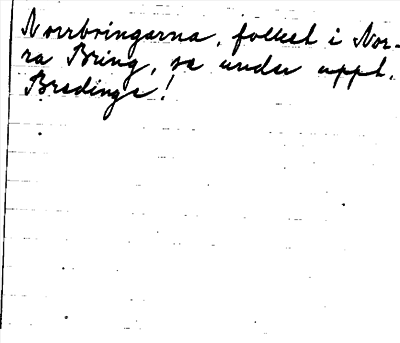 Norrbringarna, folket i Nor-
ra Bring, se under uppt.
Bredinge!